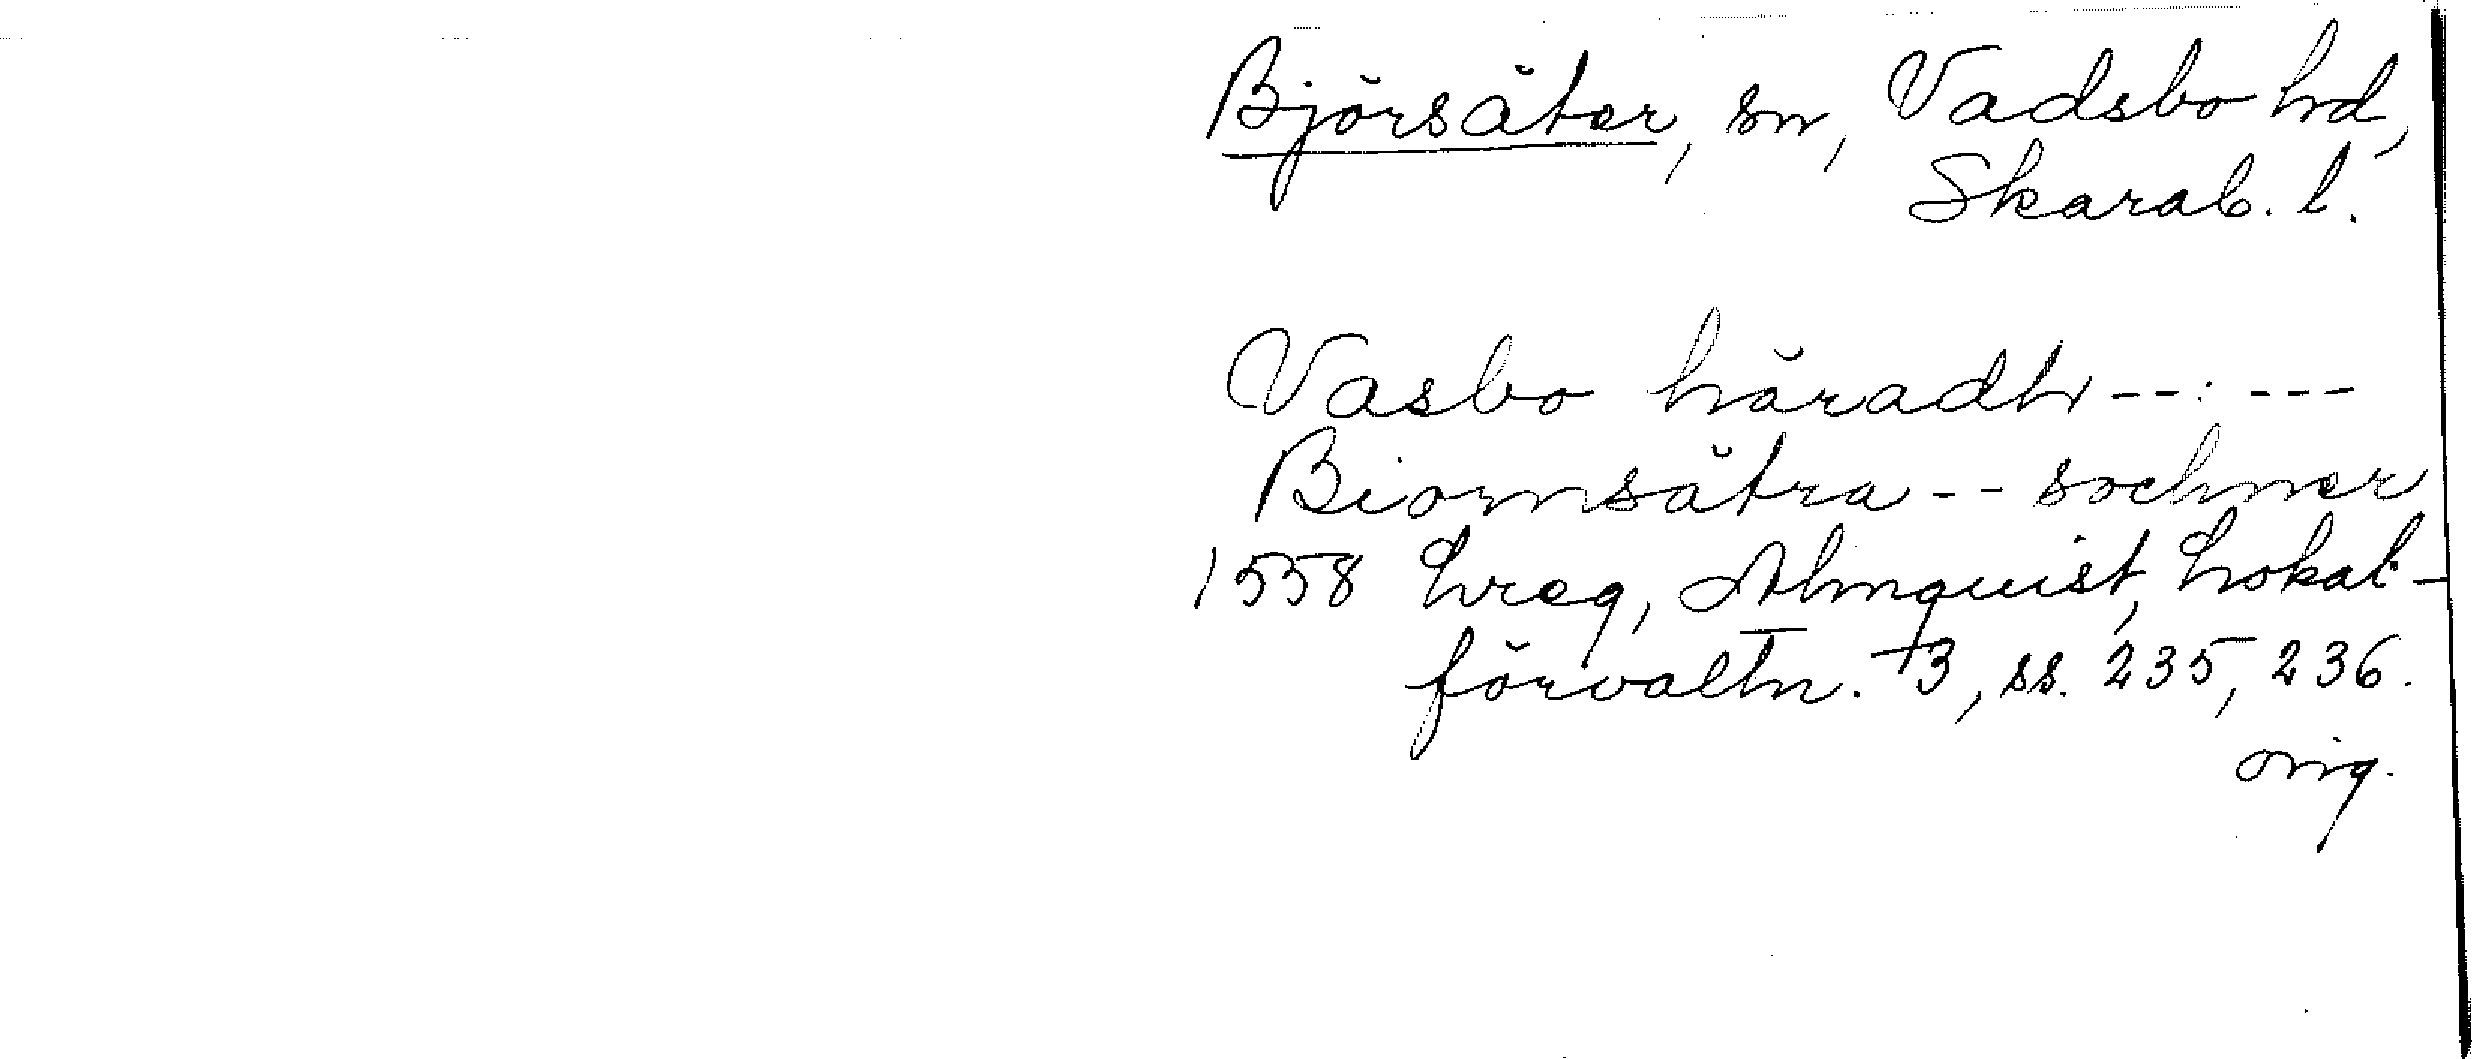 Björsäter, sn, Vadsbo hd,
Skarab. l.
Vasbo häradh -- : ---
Biornsätra -- sochner
1558 hreg, Almquist, Lokal-
förvaltn. 3, ss. 235, 236.
orig.